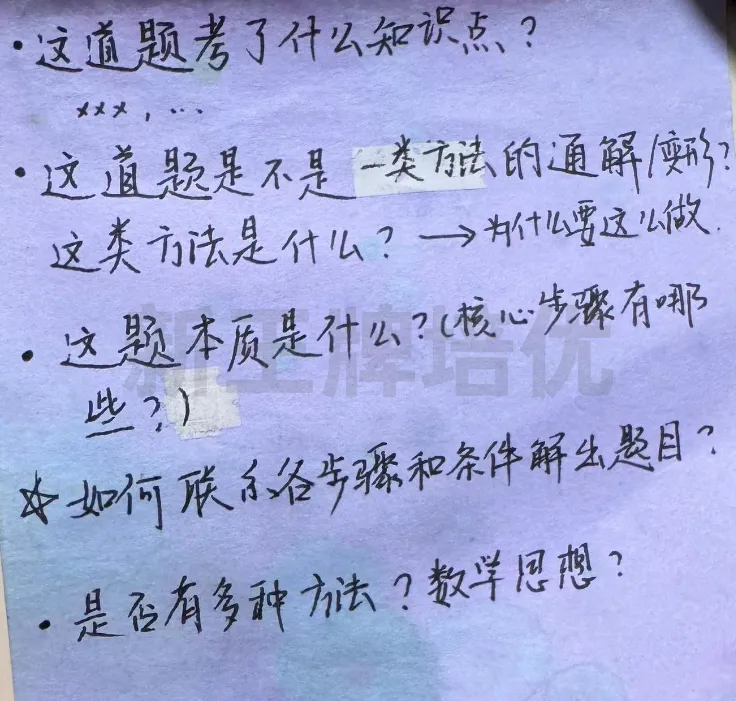 ·这道题考了什么知识点?
xxx, ...
·这道题是不是一类方法的通解/变形?
这类方法是什么?→为什么要这么做.
·这题本质是什么?(核心步骤有哪
些?)
☆如何联系各步骤和条件解出题目?
·是否有多种方法?数学思想?
新王牌培优